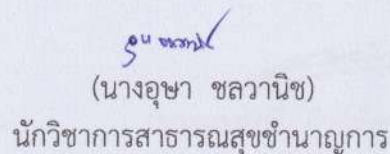 (นางอุษา ชลวานิช)
นักวิชาการสาธารณสุขชำนาญการ